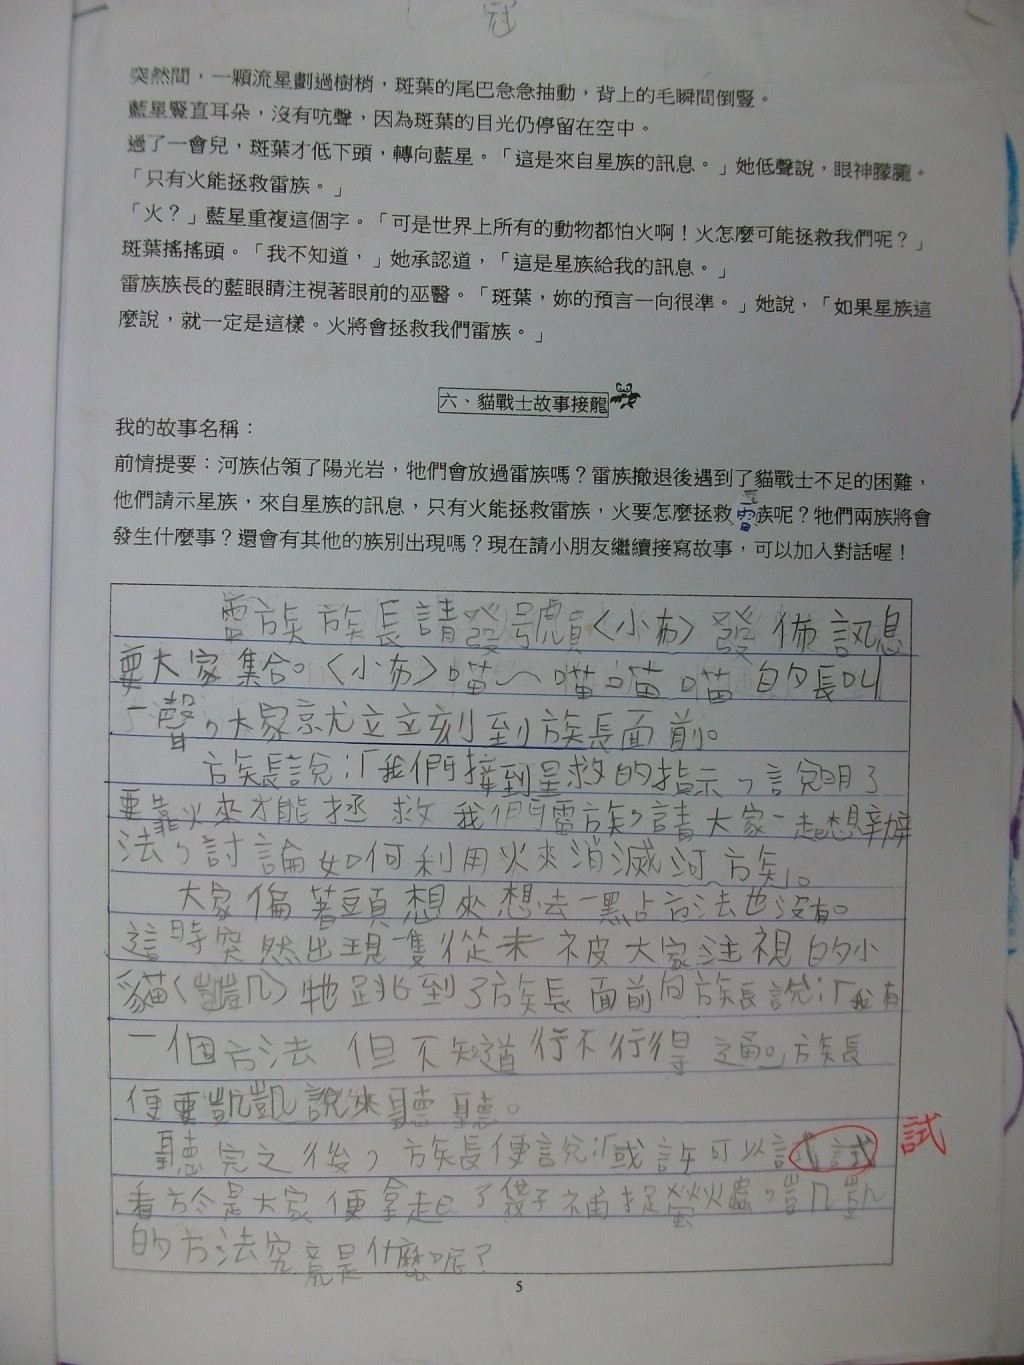 冠
突然間，一顆流星劃過樹梢，斑葉的尾巴急急抽動，背上的毛瞬間倒豎。
藍星豎直耳朵，沒有吭聲，因為斑葉的目光仍停留在空中。
過了一會兒，斑葉才低下頭，轉向藍星。「這是來自星族的訊息。」她低聲說，眼神朦朧。
「只有火能拯救雷族。」
「火？」藍星重複這個字。「可是世界上所有的動物都怕火啊！火怎麼可能拯救我們呢？」
斑葉搖搖頭。「我不知道，」她承認道，「這是星族給我的訊息。」
雷族族長的藍眼睛注視著眼前的巫醫。「斑葉，妳的預言一向很準。」她說，「如果星族這
麼說，就一定是這樣。火將會拯救我們雷族。」
六、貓戰士故事接龍
我的故事名稱：
前情提要：河族佔領了陽光岩，牠們會放過雷族嗎？雷族撤退後遇到了貓戰士不足的困難，
他們請示星族，來自星族的訊息，只有火能拯救雷族，火要怎麼拯救雷族呢？牠們兩族將會
發生什麼事？還會有其他的族別出現嗎？現在請小朋友繼續接寫故事，可以加入對話喔！
雷族族長請發號員〈小布〉發佈訊息
要大家集合。〈小布〉喵～喵喵喵的長叫
了聲，大家就立立刻到族長面前。
族長說：「我們接到星救的指示，說明了
要靠火來才能拯救我們雷族，請大家一起想辦
法，討論如何利用火來消滅河族。
大家偏著頭想來想去一點方法也沒有。
這時突然出現一隻從未被大家注視的小
貓〈凱凱〉牠跳到了族長面前向族長說：「我有
一個方法但不知道行不行得通。」族長
便要凱凱說來聽聽。
聽完之後，族長便說：「或許可以試試 試
看於是大家便拿起了袋子補捉螢火蟲，凱凱
的方法究竟是什麼呢？
5